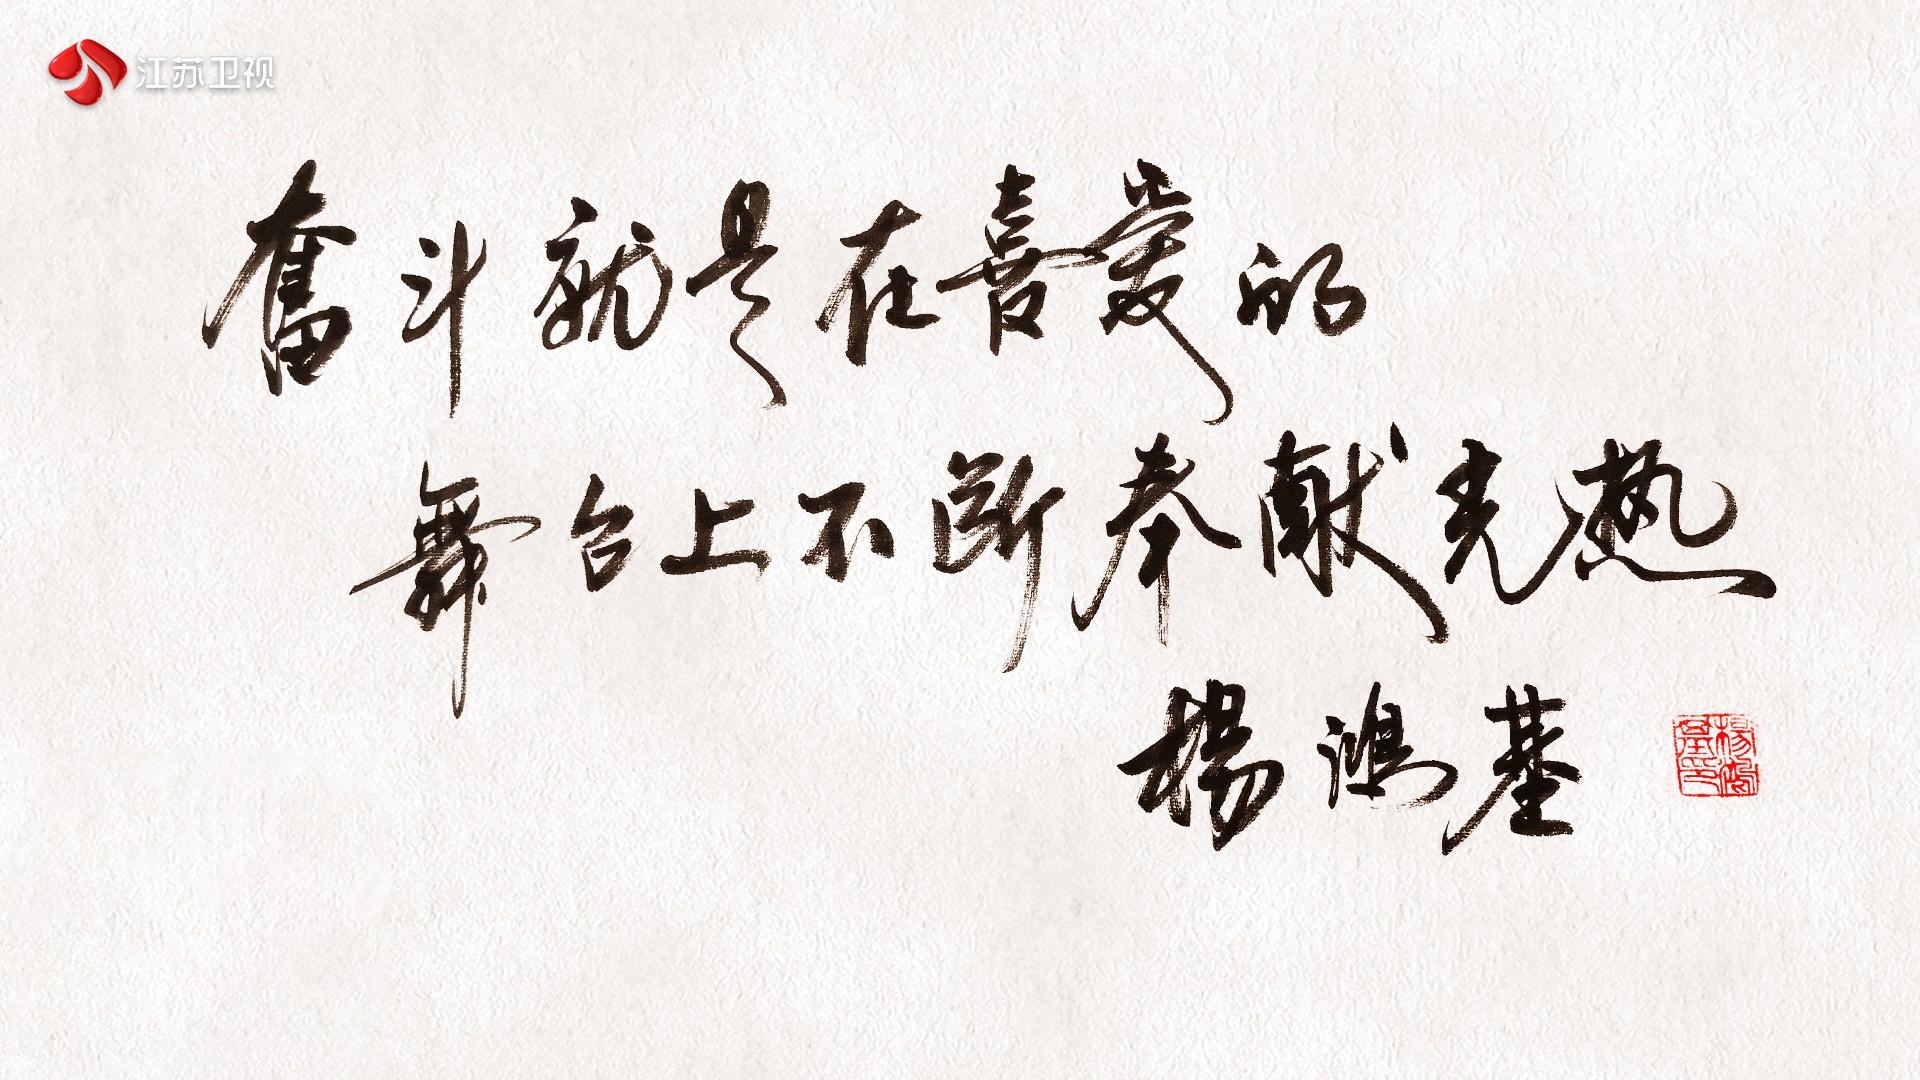 江苏卫视
奋斗就是在喜爱的
舞台上不断奉献光热
楊鴻基
杨鸿基印